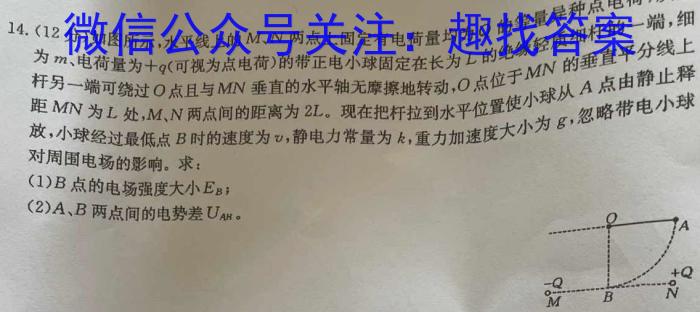 微信公众号关注：趣找答案
14.(12分)如图所示,水平线上的M、N两点
为m、电荷量为+q(可视为点电荷)的带正电小球固定在长为L的绝缘轻质细杆的一端,细
杆另一端可绕过O点且与MN垂直的水平轴无摩擦地转动,O点位于MN的垂直平分线上
距MN为L处,M、N两点间的距离为2L。现在把杆拉到水平位置使小球从A点由静止释
放,小球经过最低点B时的速度为v,静电力常量为k,重力加速度大小为g,忽略带电小球
对周围电场的影响。求:
(1)B点的电场强度大小EB;
(2)A、B两点间的电势差UAB。
O
A
-Q
+Q
M
B
N